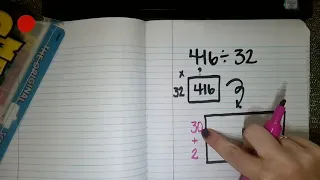 416÷32
x
32 416
30
+
2